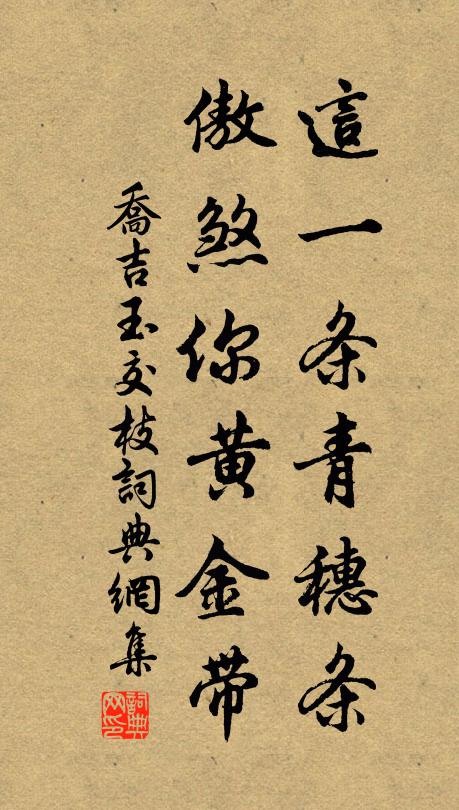 這一条青穗条
傲煞你黄金带
喬吉玉交枝詞典網集
詞典网印